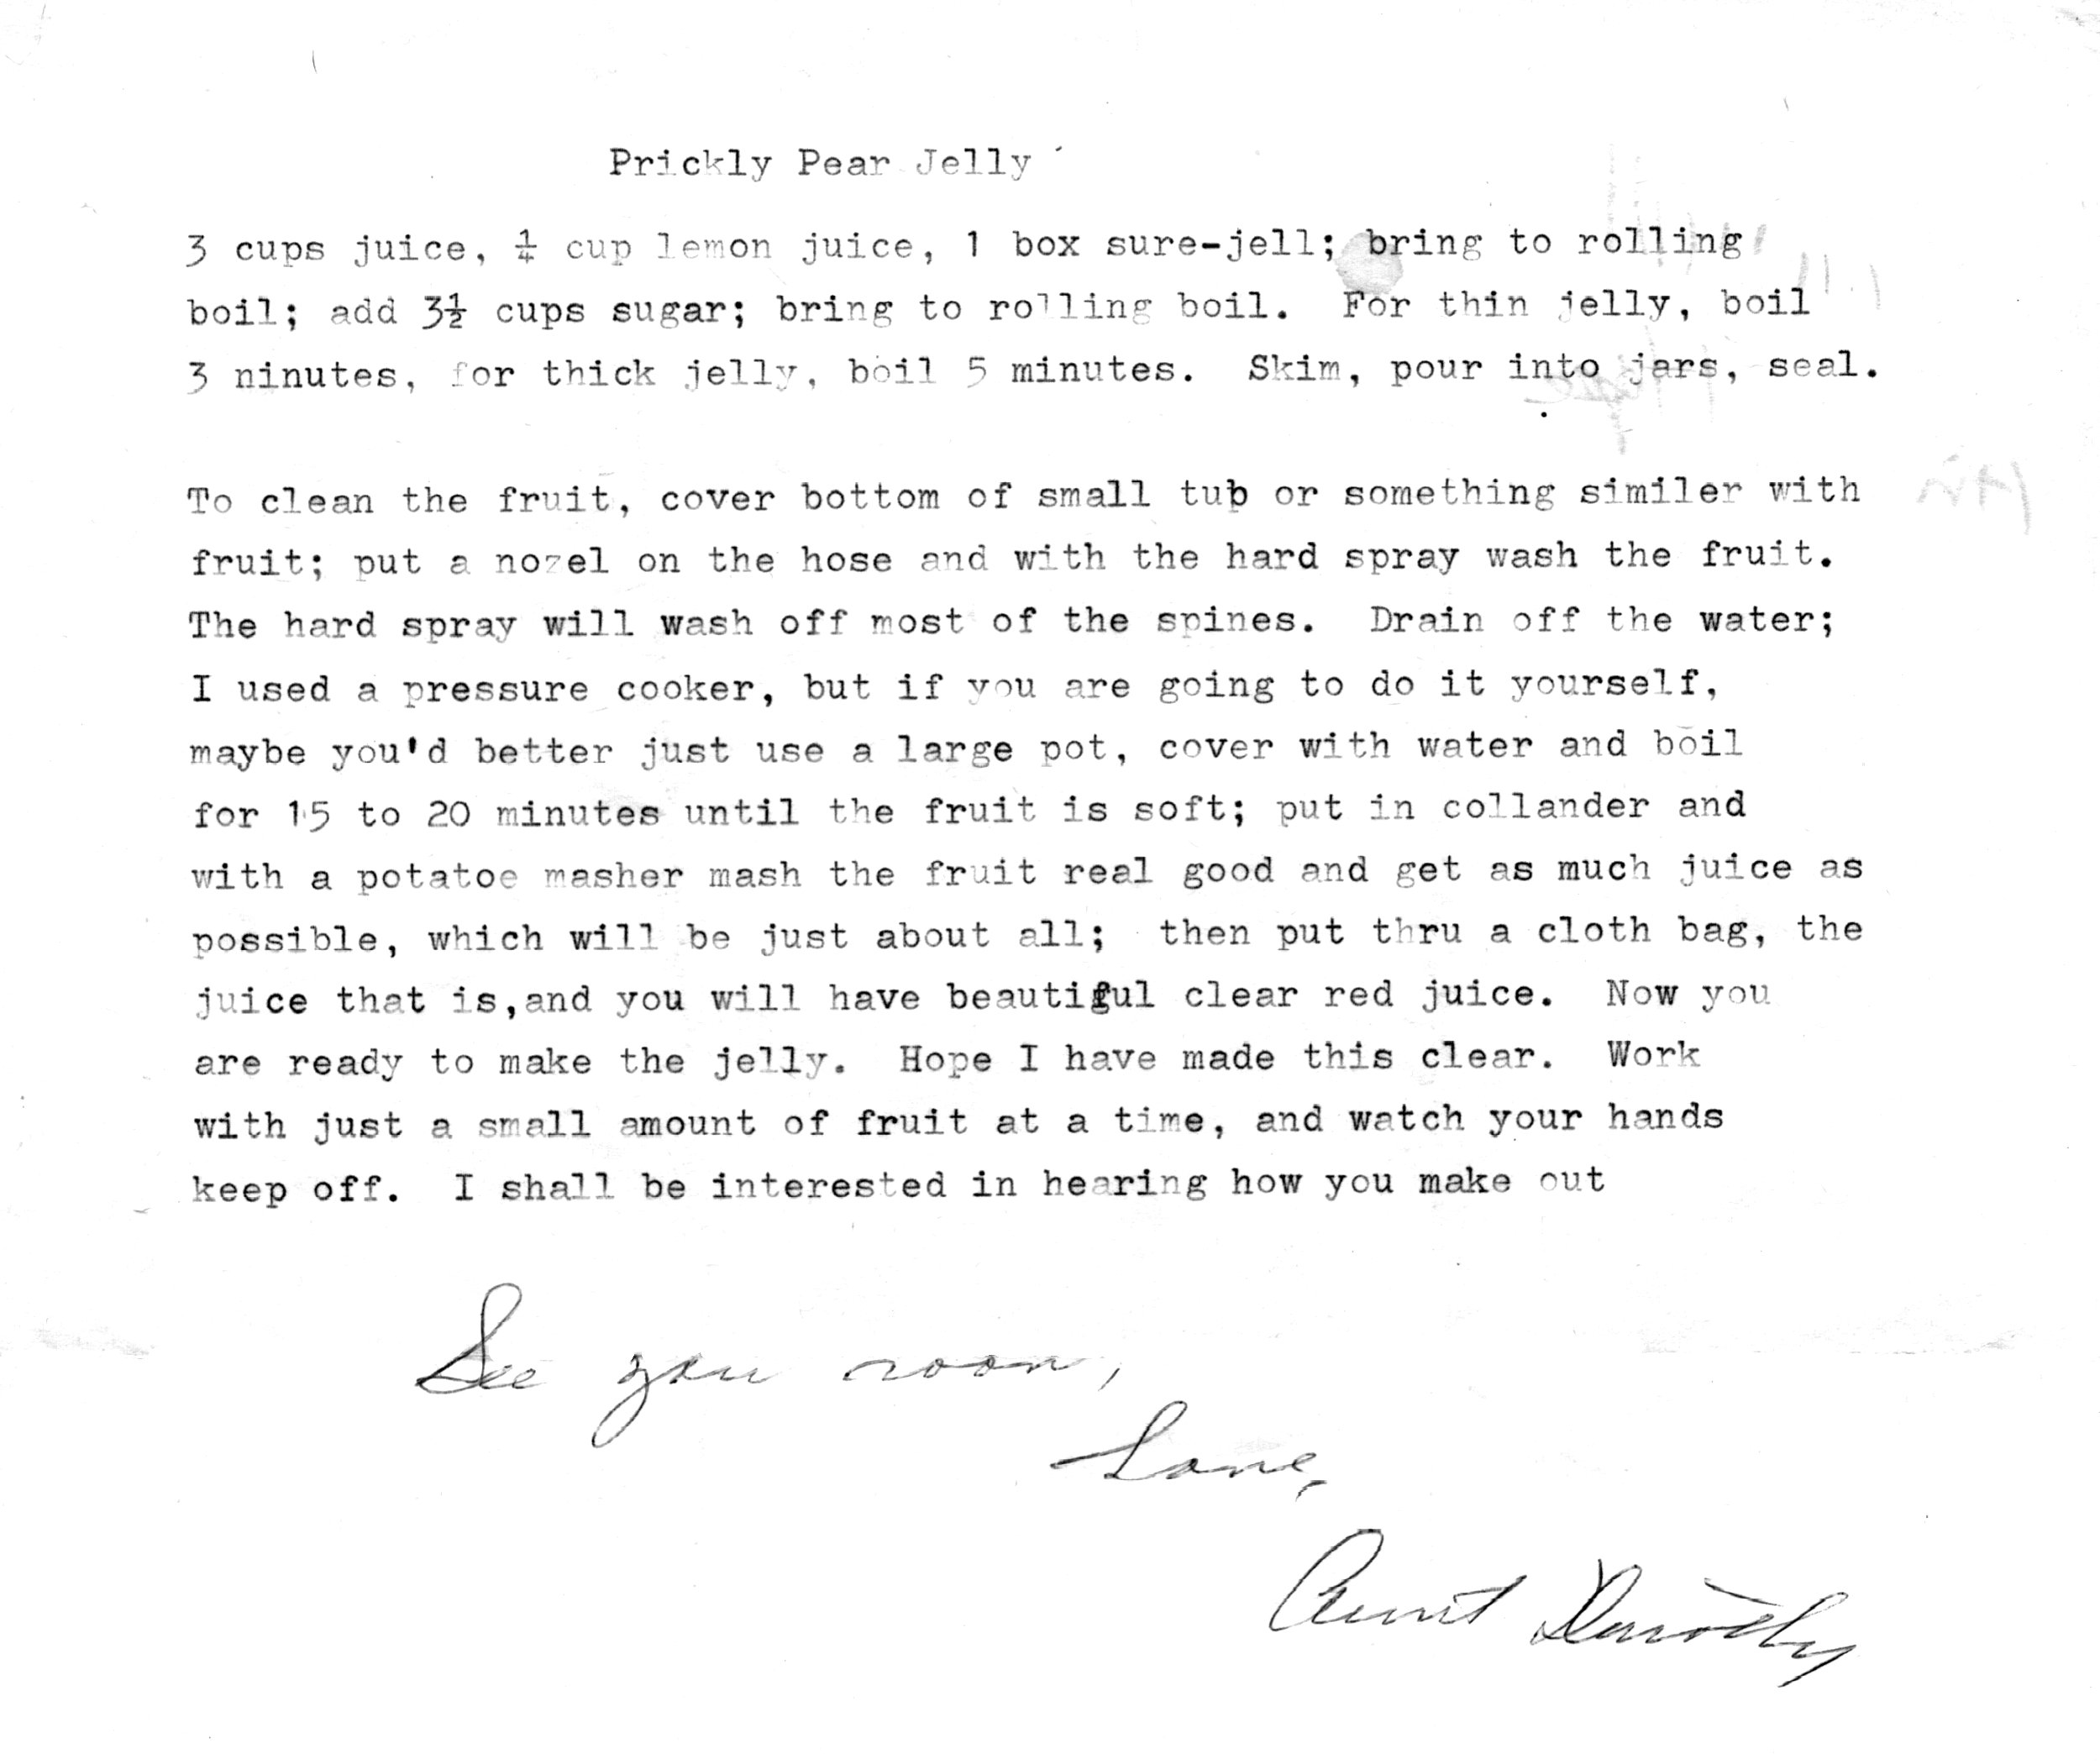 Prickly Pear Jelly
3 cups juice, ¼ cup lemon juice, 1 box sure-jell; bring to rolling
boil; add 3½ cups sugar; bring to rolling boil.  For thin jelly, boil
3 ninutes, for thick jelly, boil 5 minutes.  Skim, pour into jars, seal.
To clean the fruit, cover bottom of small tub or something similer with
fruit; put a nozel on the hose and with the hard spray wash the fruit.
The hard spray will wash off most of the spines.  Drain off the water;
I used a pressure cooker, but if you are going to do it yourself,
maybe you'd better just use a large pot, cover with water and boil
for 15 to 20 minutes until the fruit is soft; put in collander and
with a potatoe masher mash the fruit real good and get as much juice as
possible, which will be just about all;  then put thru a cloth bag, the
juice that is,and you will have beautiful clear red juice.  Now you
are ready to make the jelly.  Hope I have made this clear.  Work
with just a small amount of fruit at a time, and watch your hands
keep off.  I shall be interested in hearing how you make out
See you soon,
Love,
Aunt Dorothy